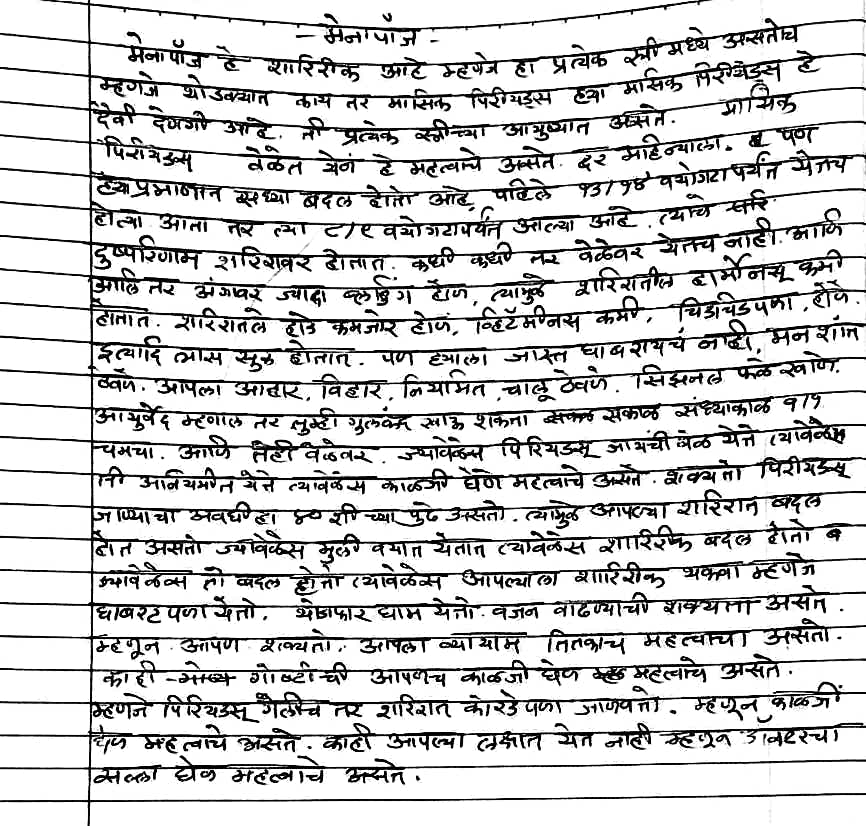 - मेनोपॉज -
मेनोपॉज हे शारिरीक आहे म्हणजे हा प्रत्येक स्त्री मध्ये असतोच
म्हणजे थोडक्यात काय तर मासिक पिरीयड्स ह्या मासिक पिरीयड्स हे
दैवी देणगी आहे. ती प्रत्येक स्त्रीच्या आयुष्यात असते. मासिक
पिरीयड्स वेळेत येणं हे महत्वाचे असते. दर महिन्याला. पण
ह्याप्रमाणात सध्या बदल होतो आहे, पहिले १३/१४ वयोगटापर्यंत येतच
होत्या आता तर त्या ८/९ वयोगटापर्यंत आल्या आहे. त्याचे
दुष्परिणाम शरिरावर होतात. कधी कधी तर वेळेवर येतच नाही. आणि
आले तर अंगावर ज्यादा ब्लडिंग होणे, त्यामुळे शरिरातील हार्मोनस् कमी
होतात. शरिरातले हाडे कमजोर होणे, व्हिटॅमीनस कमी, चिडचिडपणा, होणे
इत्यादि त्रास सुरू होतात. पण ह्याला जास्त घाबरायचं नाही, मन शांत
ठेवणे. आपला आहार, विहार, नियमित, चालू ठेवणे. सिझनल फळे खाणे.
आयुर्वेद म्हणाल तर तुम्ही गुलकंद खाऊ शकता सकाळ संध्याकाळ १/१
चमचा. आणि तेही वेळेवर. ज्यावेळेस पिरियडस् जायची वेळ येते त्यावेळेस
ती अनियमीत येते त्यावेळेस काळजी घेणे महत्वाचे असते. शक्यतो पिरीयडस्
जाण्याचा अवधी हा ४० शी च्या पुढे असतो. त्यामुळे आपल्या शरिरात बदल
होत असतो ज्यावेळेस मुली वयात येतात त्यावेळेस शारिरीक बदल होतो व
ज्यावेळेस तो बदल होतो त्यावेळेस आपल्याला शारिरीक थकवा म्हणजे
घाबरट पणा येतो. थोडाफार घाम येतो. वजन वाढण्याची शक्यता असते.
म्हणून आपण शक्यतो. आपला व्यायाम तितकाच महत्वाचा असतो.
काही गोष्टींची आपणच काळजी घेणे महत्वाचे असते.
म्हणजे पिरियडस् गेलीच तर शरिरात कोरडे पणा जाणवतो. म्हणून काळजी
घेणे महत्वाचे असते. काही आपल्या लक्षात येत नाही म्हणून डॉक्टरचा
सल्ला घेणे महत्वाचे असते.